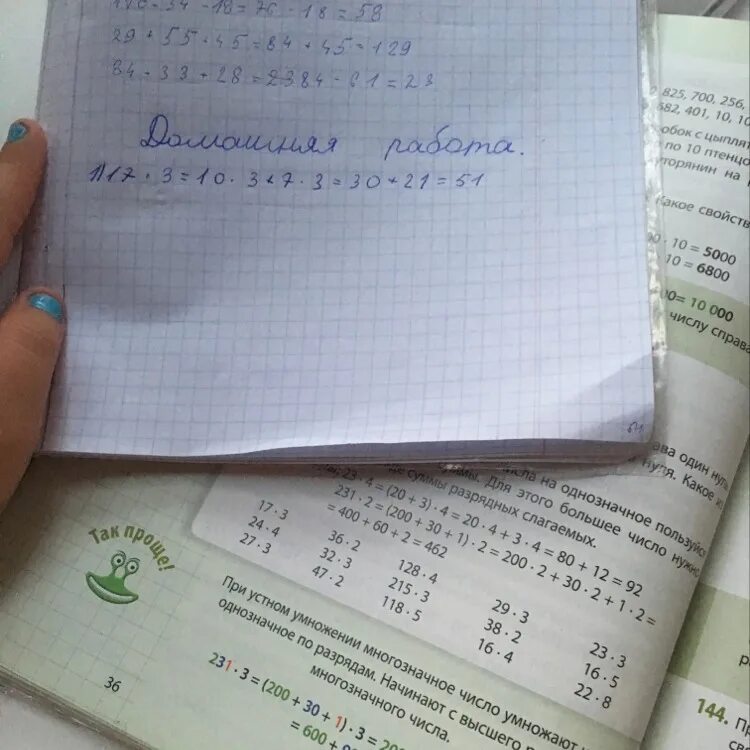 - 18 = 76 - 18 = 58
29 + 55 + 45 = 84 + 45 = 129
84 - 33 + 28 = 2384 - 61 = 23
Домашняя работа.
1) 17 · 3 = 10 · 3 + 7 · 3 = 30 + 21 = 51
825, 700, 256,
682, 401, 10, 10
обок с цыплят
по 10 птенцо
уторянин на
Какое свойств
· 10 = 5000
10 = 6800
= 10 000
числу справа
ава один нуль
нуля. Какое
числа на однозначное пользуйся
Для этого большее число нужно
суммы разрядных слагаемых.
23 · 4 = (20 + 3) · 4 = 20 · 4 + 3 · 4 = 80 + 12 = 92
231 · 2 = (200 + 30 + 1) · 2 = 200 · 2 + 30 · 2 + 1 · 2 =
= 400 + 60 + 2 = 462
17 · 3
24 · 4
27 · 3
36 · 2
32 · 3
47 · 2
128 · 4
215 · 3
118 · 5
29 · 3
38 · 2
16 · 4
23 · 3
16 · 5
22 · 8
Так проще!
При устном умножении многозначное число умножают
однозначное по разрядам. Начинают с высшего
многозначного числа.
231 · 3 = (200 + 30 + 1) · 3 =
= 600 +
36
144.